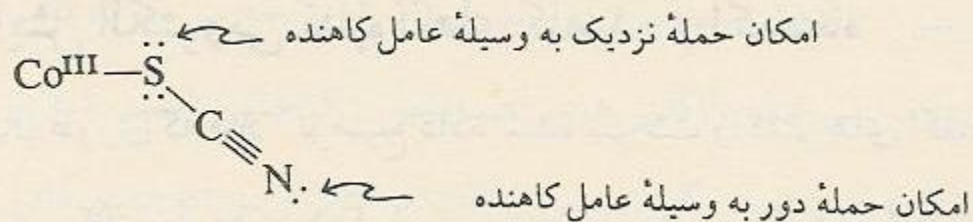 امکان حملهٔ نزدیک به وسیلهٔ عامل کاهنده
Coᴵᴵᴵ—S̈
C≡N:
امکان حملهٔ دور به وسیلهٔ عامل کاهنده